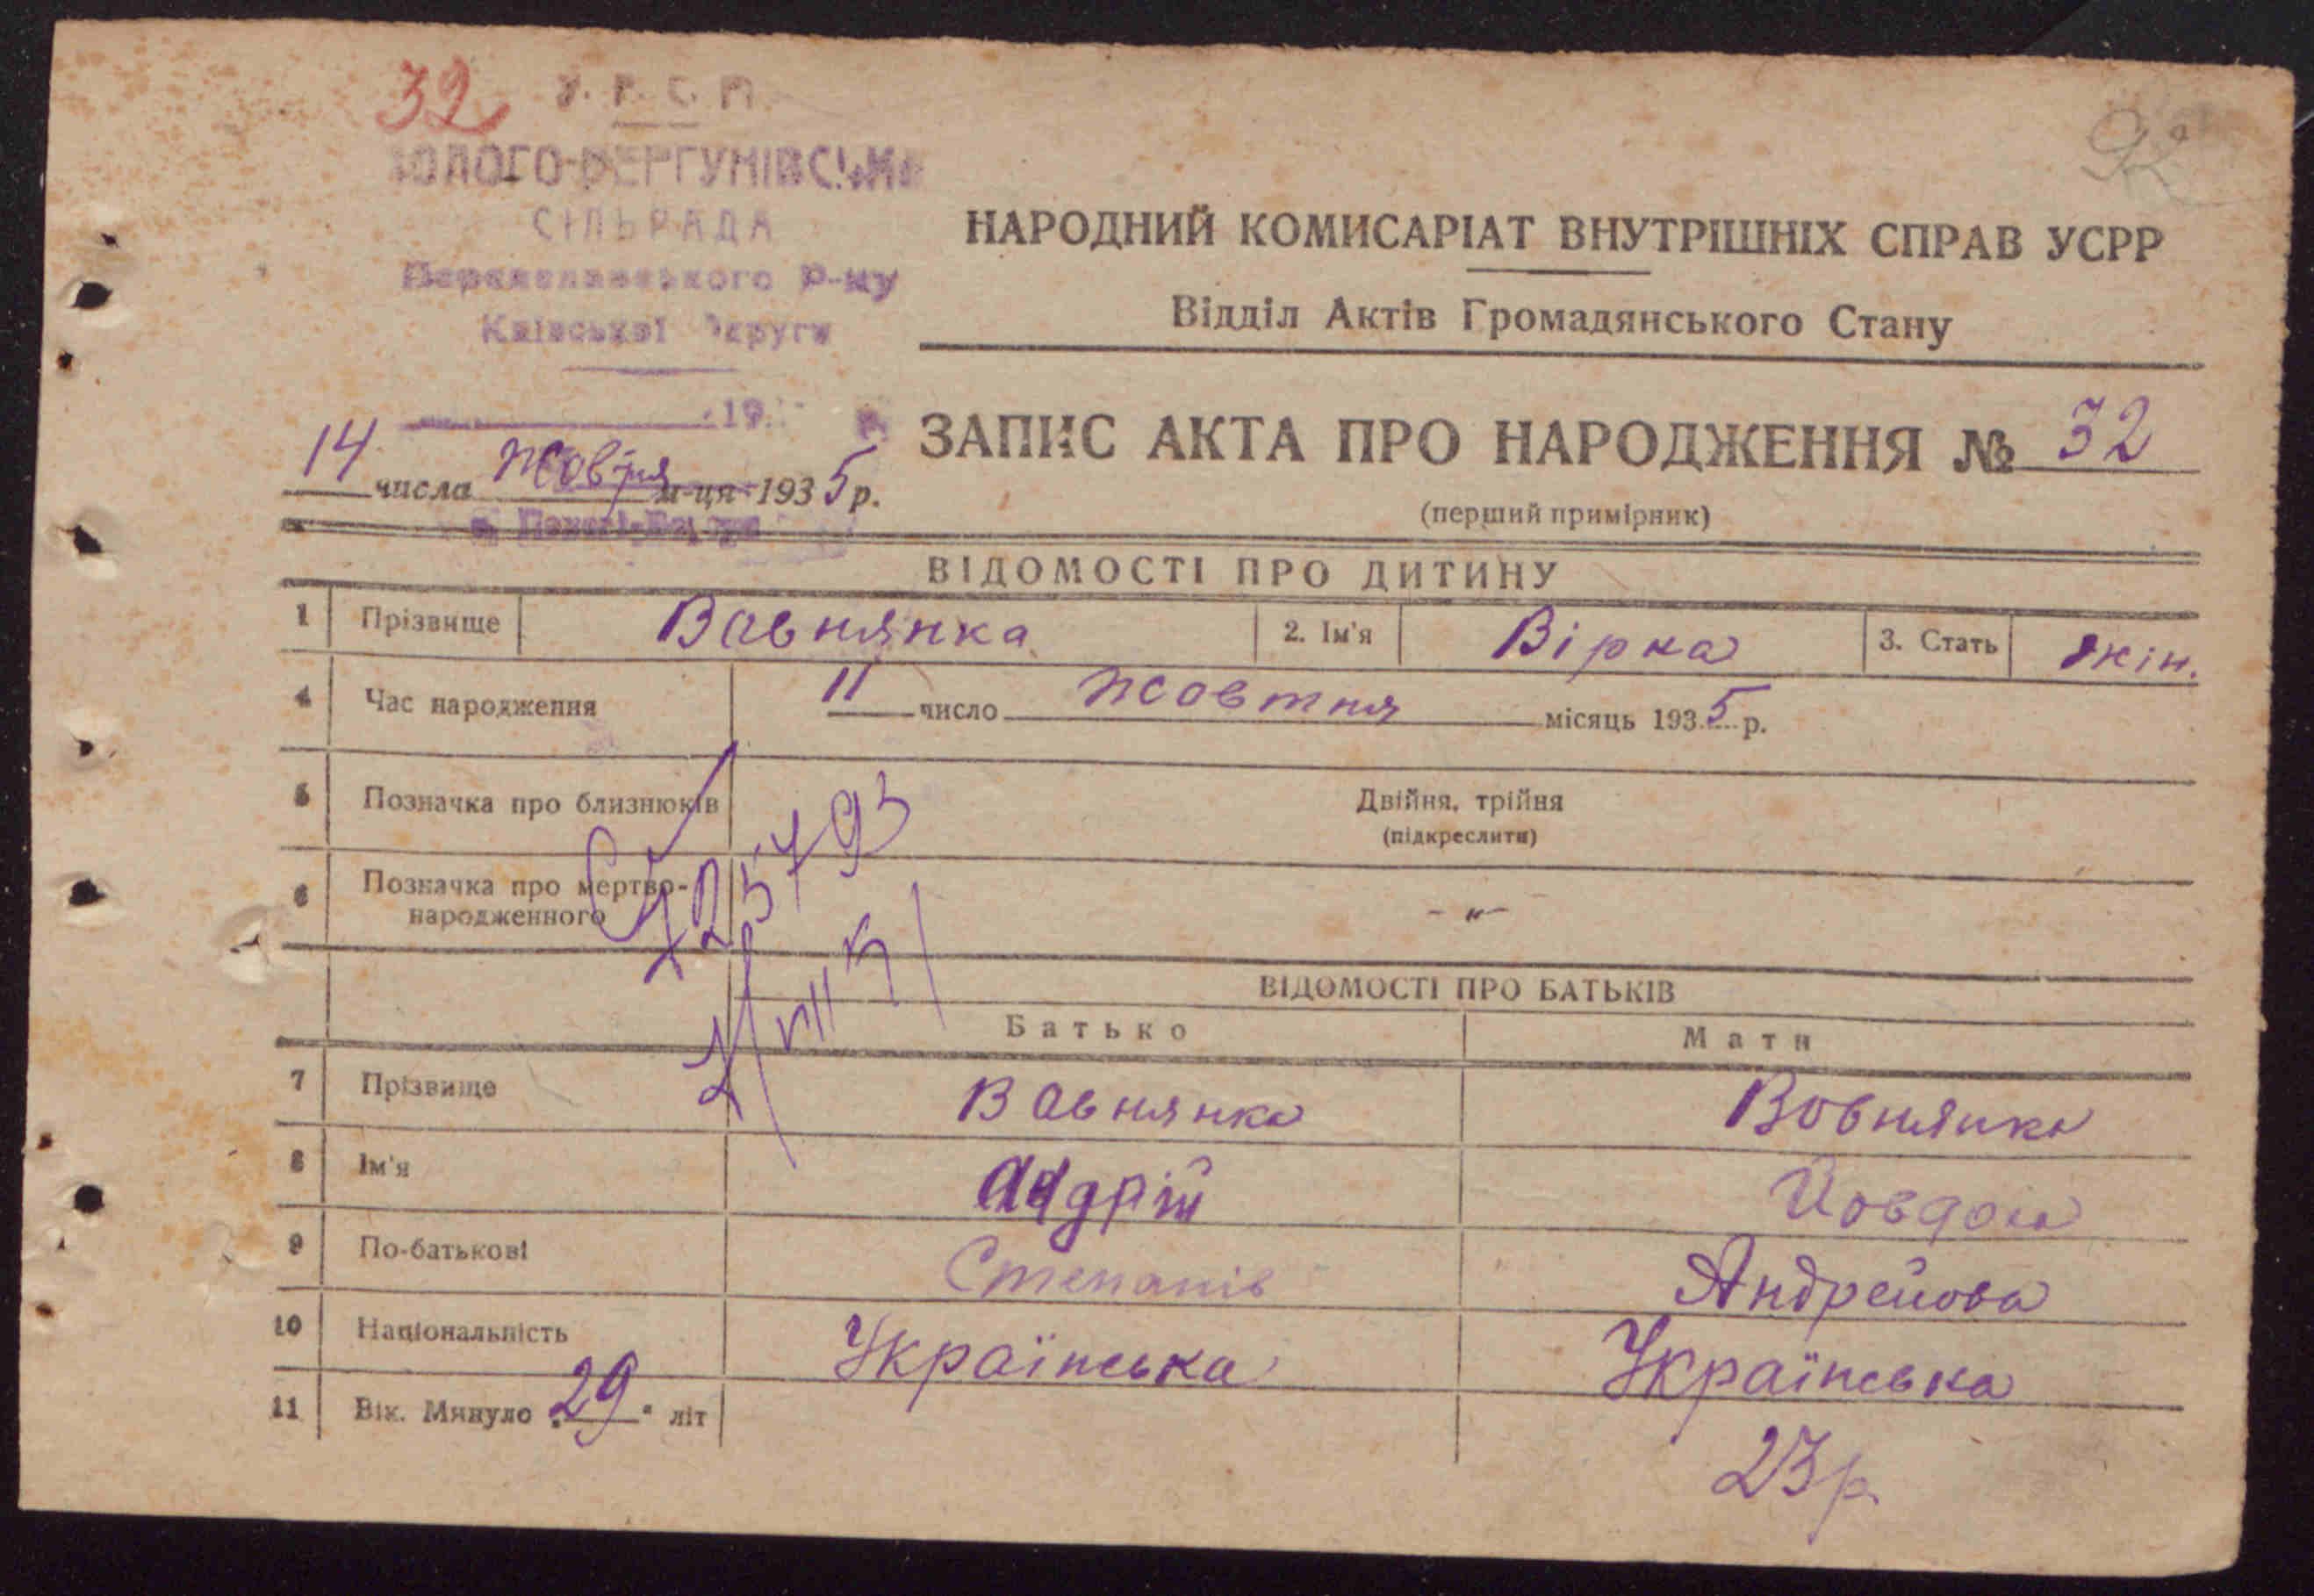 32 У. Р. С. Р.
92
СІЛЬРАДА
Р-ну
Київської Округи
НАРОДНИЙ КОМИСАРІАТ ВНУТРІШНІХ СПРАВ УСРР
Відділ Актів Громадянського Стану
19
14 числа Жовтня м-ця 1935 р.
ЗАПИС АКТА ПРО НАРОДЖЕННЯ № 32
(перший примірник)
ВІДОМОСТІ ПРО ДИТИНУ
1 Прізвище Вавнянка 2. Ім'я Вірка 3. Стать жін.
4 Час народження 11 число Жовтня місяць 1935 р.
5 Позначка про близнюків Двійня, трійня
(підкреслити)
6 Позначка про мертво-
народженного - „ -
ВІДОМОСТІ ПРО БАТЬКІВ
Батько Мати
7 Прізвище Вавнянка Вовнянка
8 Ім'я Андрій
9 По-батькові Степанів Андрейова
10 Національність Українська Українська
11 Вік. Минуло „29" літ 23 р.